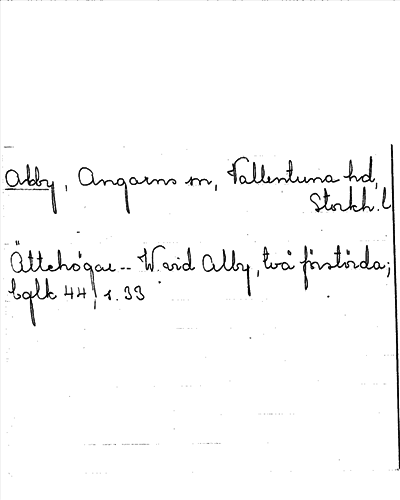 Alby, Angarns sn, Vallentuna hd,
Stockh. l
Ättehögar -- W. vid Alby, två förstörda;
bglk 44, s. 33